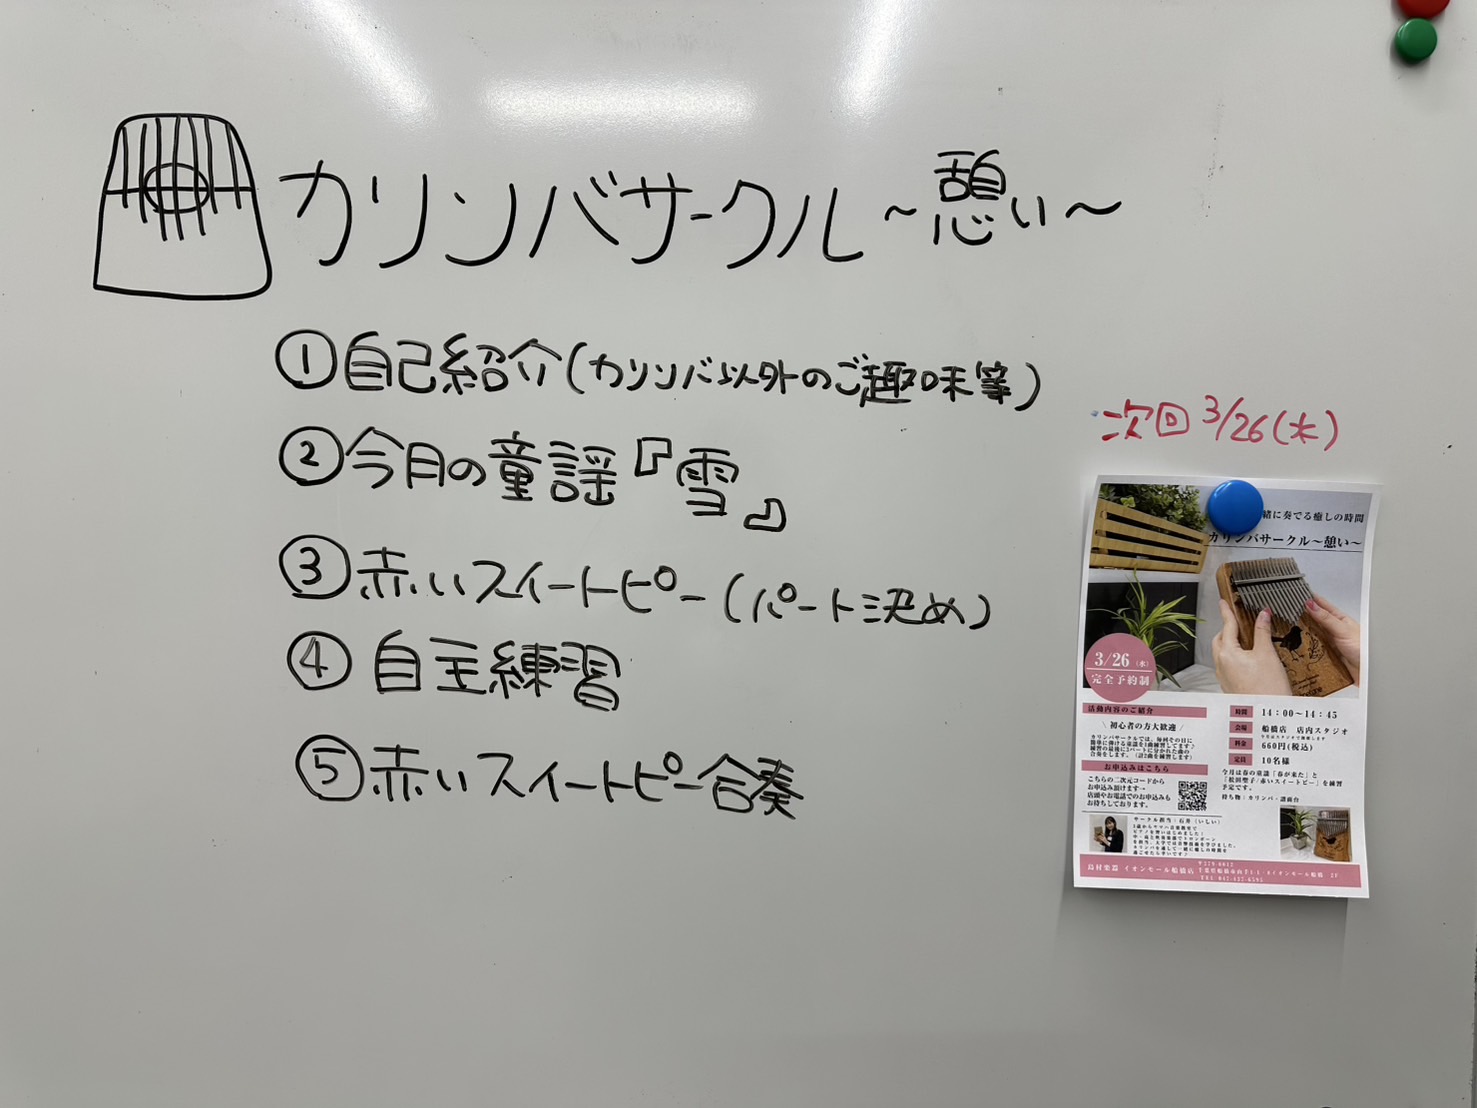 カリンバサークル～憩い～
①自己紹介(カリンバ以外のご趣味等)
②今月の童謡『雪』
③赤いスイートピー(パート決め)
④自主練習
⑤赤いスイートピー合奏
次回3/26(水)
緒に奏でる癒しの時間
カリンバサークル～憩い～
3/26(水)
完全予約制
活動内容のご紹介
\ 初心者の方大歓迎 /
カリンバサークルでは、毎回その日に
簡単に弾ける童謡を1曲練習してます♪
練習の最後に3パートに分かれた曲の
合奏をします。(計2曲を練習します)
お申込みはこちら
こちらの二次元コードから
お申込み頂けます→
店頭やお電話でのお申込みも
お待ちしております。
時間 14：00～14：45
会場 船橋店 店内スタジオ
料金 660円(税込)
定員 10名様
今月は春の童謡「春が来た」と
「松田聖子/赤いスイートピー」を練習
予定です。
持ち物：カリンバ・譜面台
サークル担当：石井（いしい）
島村楽器 イオンモール船橋店